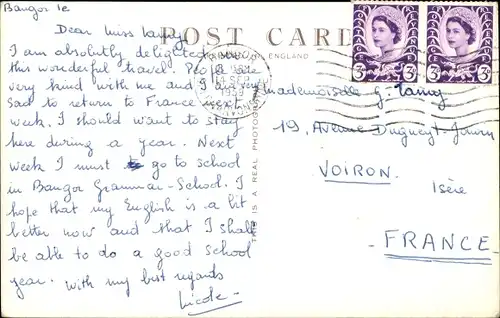 Bangor le
POST CARD
Dear Miss Lamy,
I am absolutly delighted with
this wonderful travel. People are
very kind with me and I am very
sad to return to France next
week. I should want to stay
here during a year. Next
week I must go to school
in Bangor Grammar-School. I
hope that my English is a bit
better now and that I shall
be able to do a good school
year. With my best regards
Nicole-
THIS IS A REAL PHOTOGRAPH
ENGLAND
3D 3D
Mademoiselle G. Lamy
19, Avenue Duguey-Jouvin
VOIRON.
Isère
- FRANCE -